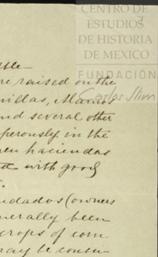 CENTRO DE
ESTUDIOS
DE HISTORIA
DE MEXICO
FUNDACIÓN
Carlos Slim
ble
re raised on the
nillas, Manos
nd several other
perously in the
en haciendas
with good
dados (owners
nerally been
crops of corn
may be consi-